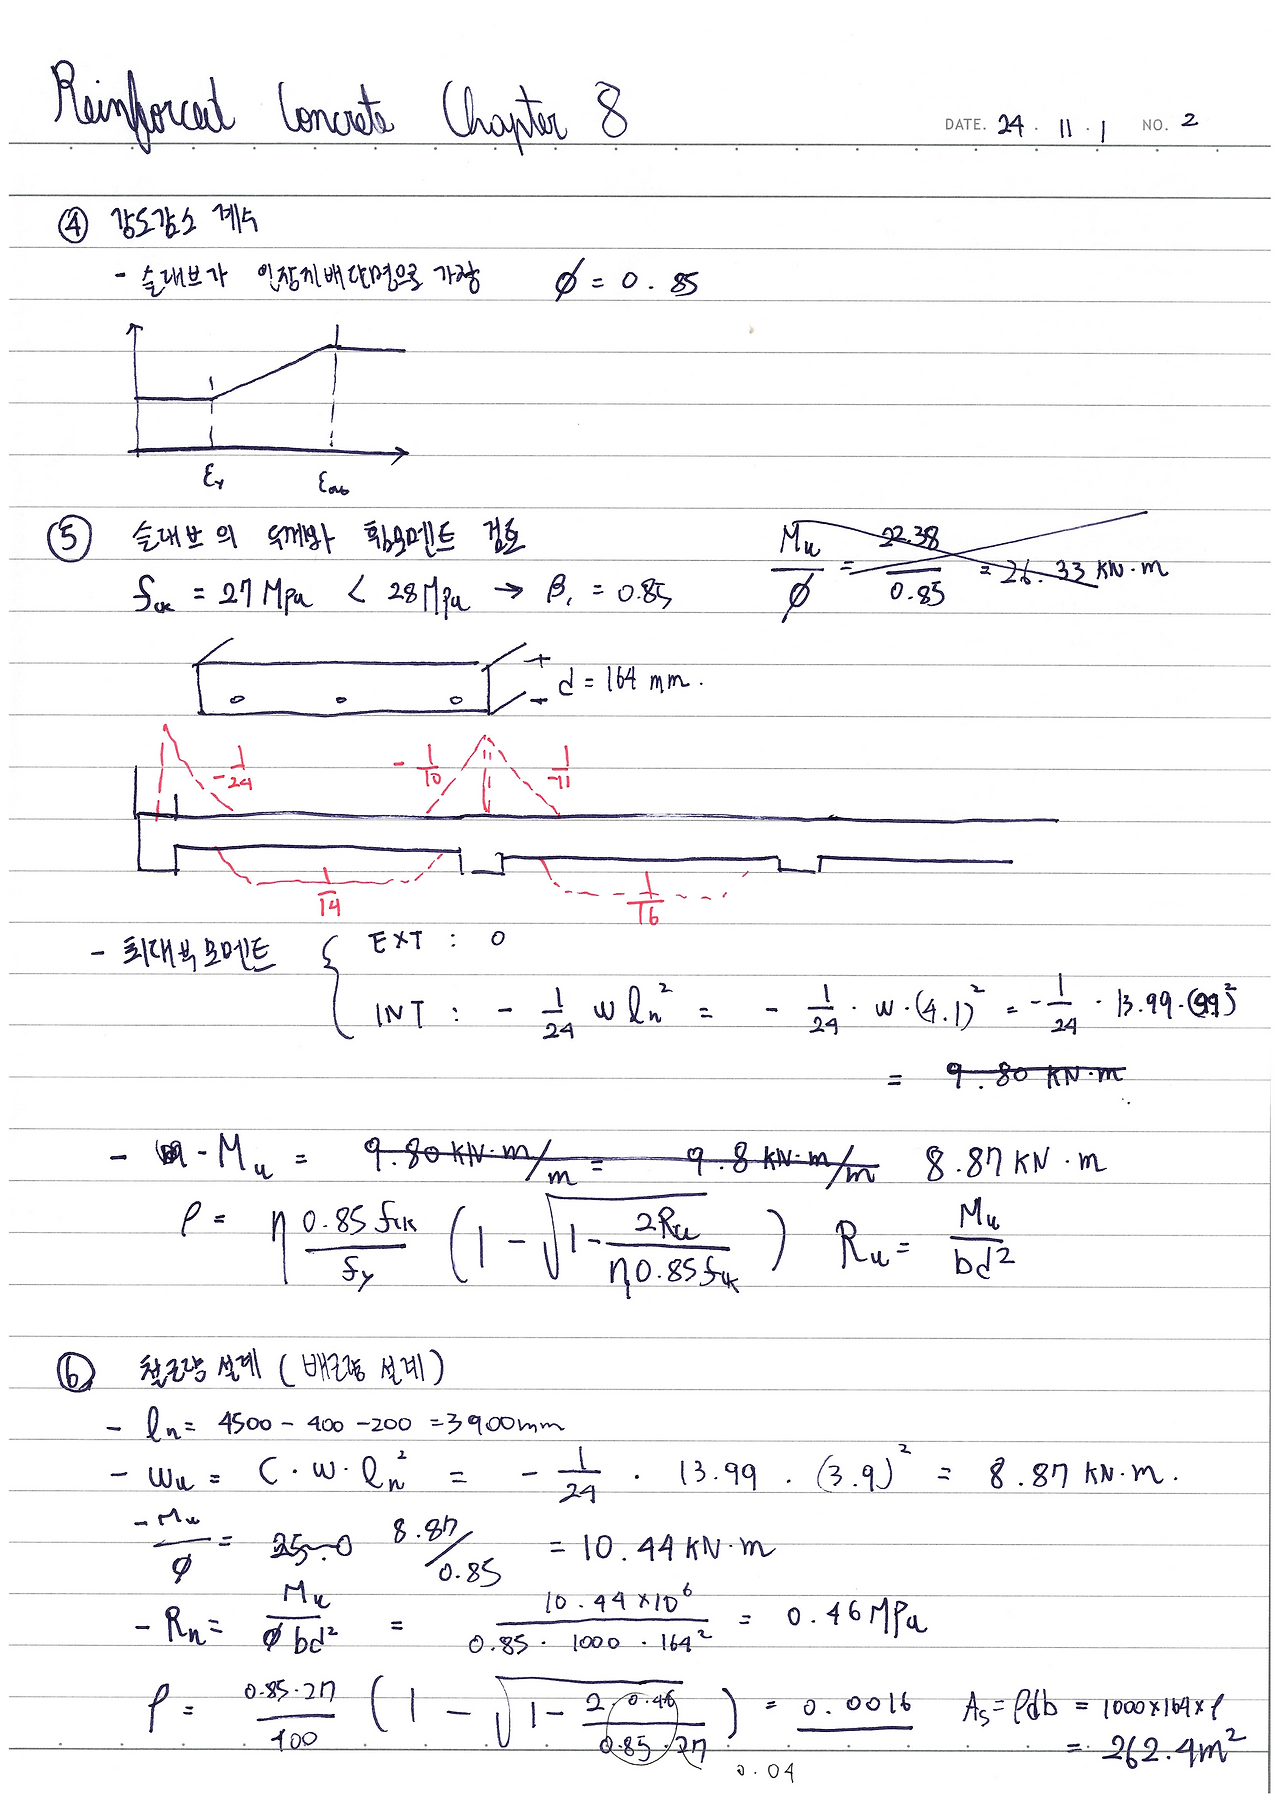 Reinforced Concrete Chapter 8
DATE. 24 . 11 . 1 NO. 2
④ 강도감소 계수
- 슬래브가 인장지배단면으로 가정 ϕ = 0.85
εy
⑤ 슬래브의 두께와 휨모멘트 검토
Mu/ϕ = 22.38/0.85 = 26.33 KN·m
fck = 27 MPa < 28 MPa → β₁ = 0.85
d = 164 mm.
-1/24 -1/10 -1/11
1/14 1/16
- 최대부모멘트 { EXT : 0
INT : - 1/24 w ln² = - 1/24 · w · (4.1)² = - 1/24 · 13.99 · (3.9)²
= 9.80 KN·m
- Mu = 9.80 KN·m/m = 9.8 KN·m/m 8.87 KN·m
ρ = η 0.85 fck/fy (1 - √(1 - 2Ru/η0.85fck)) Ru = Mu/bd²
⑥ 철근량 설계 ( 배근량 설계 )
- ln = 4500 - 400 - 200 = 3900mm
- wu = C · w · ln² = - 1/24 · 13.99 · (3.9)² = 8.87 KN·m.
- Mu/ϕ = 25.0 8.87/0.85 = 10.44 KN·m
- Rn = Mu/ϕbd² = 10.44×10⁶/0.85 · 1000 · 164² = 0.46 MPa
ρ = 0.85·27/400 (1 - √(1 - 2·0.46/0.85·27)) = 0.0016 As = ρdb = 1000×164×ρ
0.04
= 262.4m²